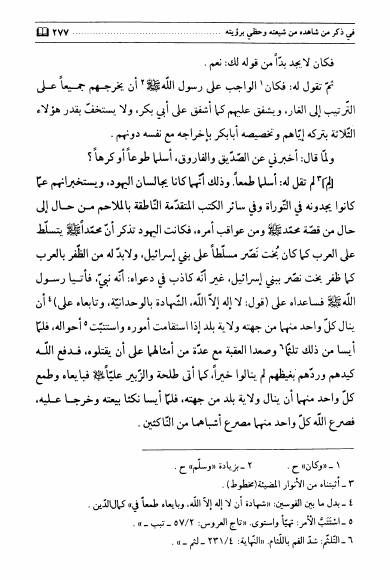 في ذكر من شاهده من شيعته وحظي برؤيته ................ ٢٧٧
فكان لا يجد بدّاً من قوله لك: نعم .
ثمّ تقول له: فكان١ الواجب على رسول اللهﷺ٢ أن يخرجهم جميعاً على
الترتيب إلى الغار، ويشفق عليهم كما أشفق على أبي بكر، ولا يستخفّ بقدر هؤلاء
الثلاثة بتركه إيّاهم وتخصيصه أبابكر بإخراجه مع نفسه دونهم .
ولمّا قال: أخبرني عن الصدّيق والفاروق، أسلما طوعاً أو كرهاً؟
[لِمَ]٣ لم تقل له: أسلما طمعاً. وذلك أنّهما كانا يجالسان اليهود، ويستخبرانهم عمّا
كانوا يجدونه في التوراة وفي سائر الكتب المتقدّمة النّاطقة بالملاحم من حال إلى
حال من قصّة محمّدﷺ ومن عواقب أمره، فكانت اليهود تذكر أنّ محمّداًﷺ يتسلّط
على العرب كما كان بُخت نَصّر مسلّطاً على بني إسرائيل، ولابدّ له من الظّفر بالعرب
كما ظفر بخت نصّر ببني إسرائيل، غير أنّه كاذب في دعواه: أنّه نبيّ، فأتيا رسول
اللهﷺ فساعداه على (قول: لا إله إلّا الله، الشّهادة بالوحدانيّة، وتابعاه على)٤ أن
ينال كلّ واحد منهما من جهته ولاية بلد إذا استقامت أموره واستتبّت٥ أحواله، فلمّا
أيسا من ذلك تلثّما٦ وصعدا العقبة مع عدّة من أمثالهما على أن يقتلوه، فدفع الله
كيدهم وردّهم بغيظهم لم ينالوا خيراً، كما أتى طلحة والزّبير عليّاً فبايعاه وطمع
كلّ واحد منهما أن ينال ولاية بلد من جهته، فلمّا أيسا نكثا بيعته وخرجا عليه،
فصرع الله كلّ واحد منهما مصرع أشباهما من النّاكثين .
١ ـ «وكان» ح . ٢ ـ بزيادة «وسلّم» ح .
٣ ـ أثبتناه من الأنوار المضيئة(مخطوط) .
٤ ـ بدل ما بين القوسين: «شهادة أن لا إله إلّا الله. وبايعاه طمعاً في» كمال‌الدّين .
٥ ـ اسْتَتَبَّ الأمر: تهيّأ واستوى. «تاج العروس: ٥٧/٢ ـ تبب ـ» .
٦ ـ التلثّم: شدّ الفم باللّثام. «النهاية: ٢٣١/٤ ـ لثم ـ» .